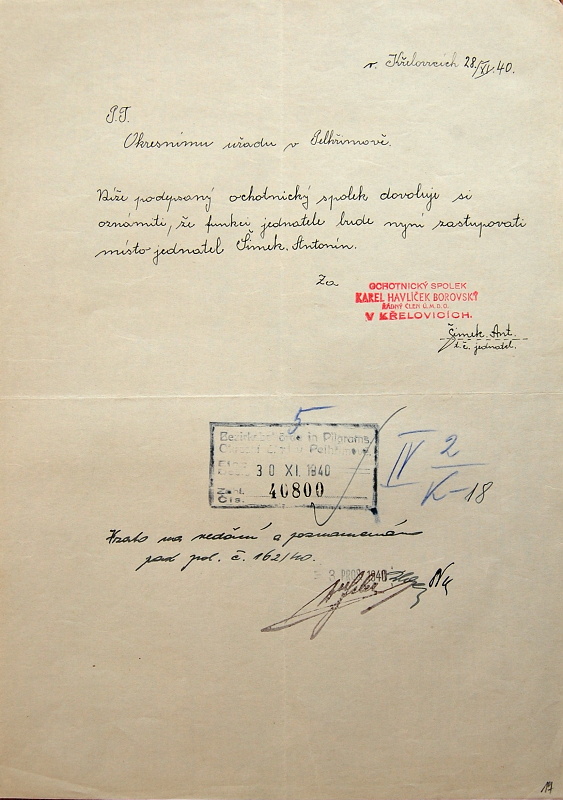 v. Křelovicích 28./XI. 40.
P.T.
Okresnímu úřadu v Pelhřimově.
Níže podepsaný ochotnický spolek dovoluje si
oznámiti, že funkci jednatele bude nyní zastupovati
místo-jednatel Šimek. Antonín.
Za
OCHOTNICKÝ SPOLEK
KAREL HAVLÍČEK BOROVSKÝ
ŘÁDNÝ ČLEN Ú.M.D.O.
V KŘELOVICÍCH.
Šimek. Ant.
t.č. jednatel.
5
in Pilgrams
30 XI. 1940
Zahl.
Čís. 40800
IV 2/K-18
Vzato na vědomí a poznamenáno
pod pol. č. 162/40.
3 PROS 1940
17